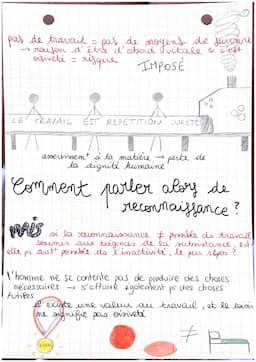 pas de travail = pas de moyens de survivre
→ raison d'être d'abord vitale
oisiveté = risque
IMPOSÉ
LE TRAVAIL EST REPETITION DURETÉ
asservissement à la matière → perte de
la dignité humaine
Comment parler alors de
reconnaissance ?
MAIS si la reconnaissance ≠ possible du travail
soumis aux exigences de la subsistance, est
elle pr aut° possible de l'inactivité, le pur
l'homme ne se contente pas de produire des choses
nécessaires → s'affaire également pr des choses
futiles
il existe une valeur au travail, et le loisir
ne signifie pas oisiveté
≠